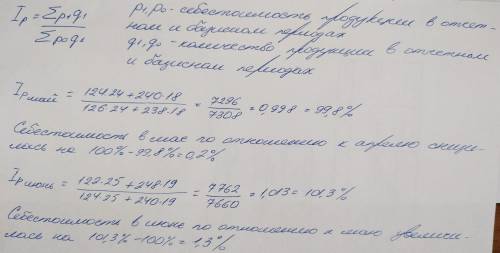 Iр = Σp₁q₁ / Σp₀q₀
p₁,p₀ - себестоимость продукции в отчет-
ном и базисном периодах
q₁,q₀ - количество продукции в отчетном
и базисном периодах
Iр май = (124·24+240·18) / (126·24+238·18) = 7296 / 7308 = 0,998 = 99,8%
Себестоимость в мае по отношению к апрелю снизи-
лась на 100%-99,8% = 0,2%
Iр июнь = (122·25+248·19) / (124·25+240·19) = 7762 / 7660 = 1,013 = 101,3%
Себестоимость в июне по отношению к маю увеличи-
лась на 101,3%-100% = 1,3%